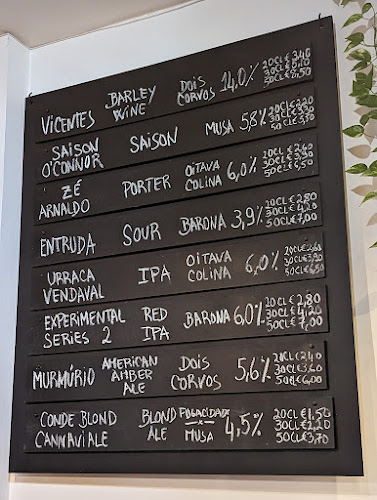 VICENTES BARLEY WINE DOIS CORVOS 14,0% 20CL€3,40 30CL€5,10 50CL€8,50
SAISON O'CONNOR SAISON MUSA 5,8% 20CL€2,20 30CL€3,30
ZÉ ARNALDO PORTER OITAVA COLINA 6,0% 20CL€2,60 30CL€3,90 50CL€6,50
ENTRUDA SOUR BARONA 3,9% 20CL€2,80 30CL€4,20 50CL€7,00
URRACA VENDAVAL IPA OITAVA COLINA 6,0% 20CL€2,60 30CL€3,90 50CL€6,50
EXPERIMENTAL SERIES 2 RED IPA BARONA 6,0% 20CL€2,80 30CL€4,20 50CL€7,00
MURMÚRIO AMERICAN AMBER ALE DOIS CORVOS 5,6% 20CL€2,40 30CL€3,60 50CL€6,00
CONDE BLOND CANNAVIALE BLOND ALE MUSA 4,5% 20CL€1,50 30CL€2,20 50CL€3,70